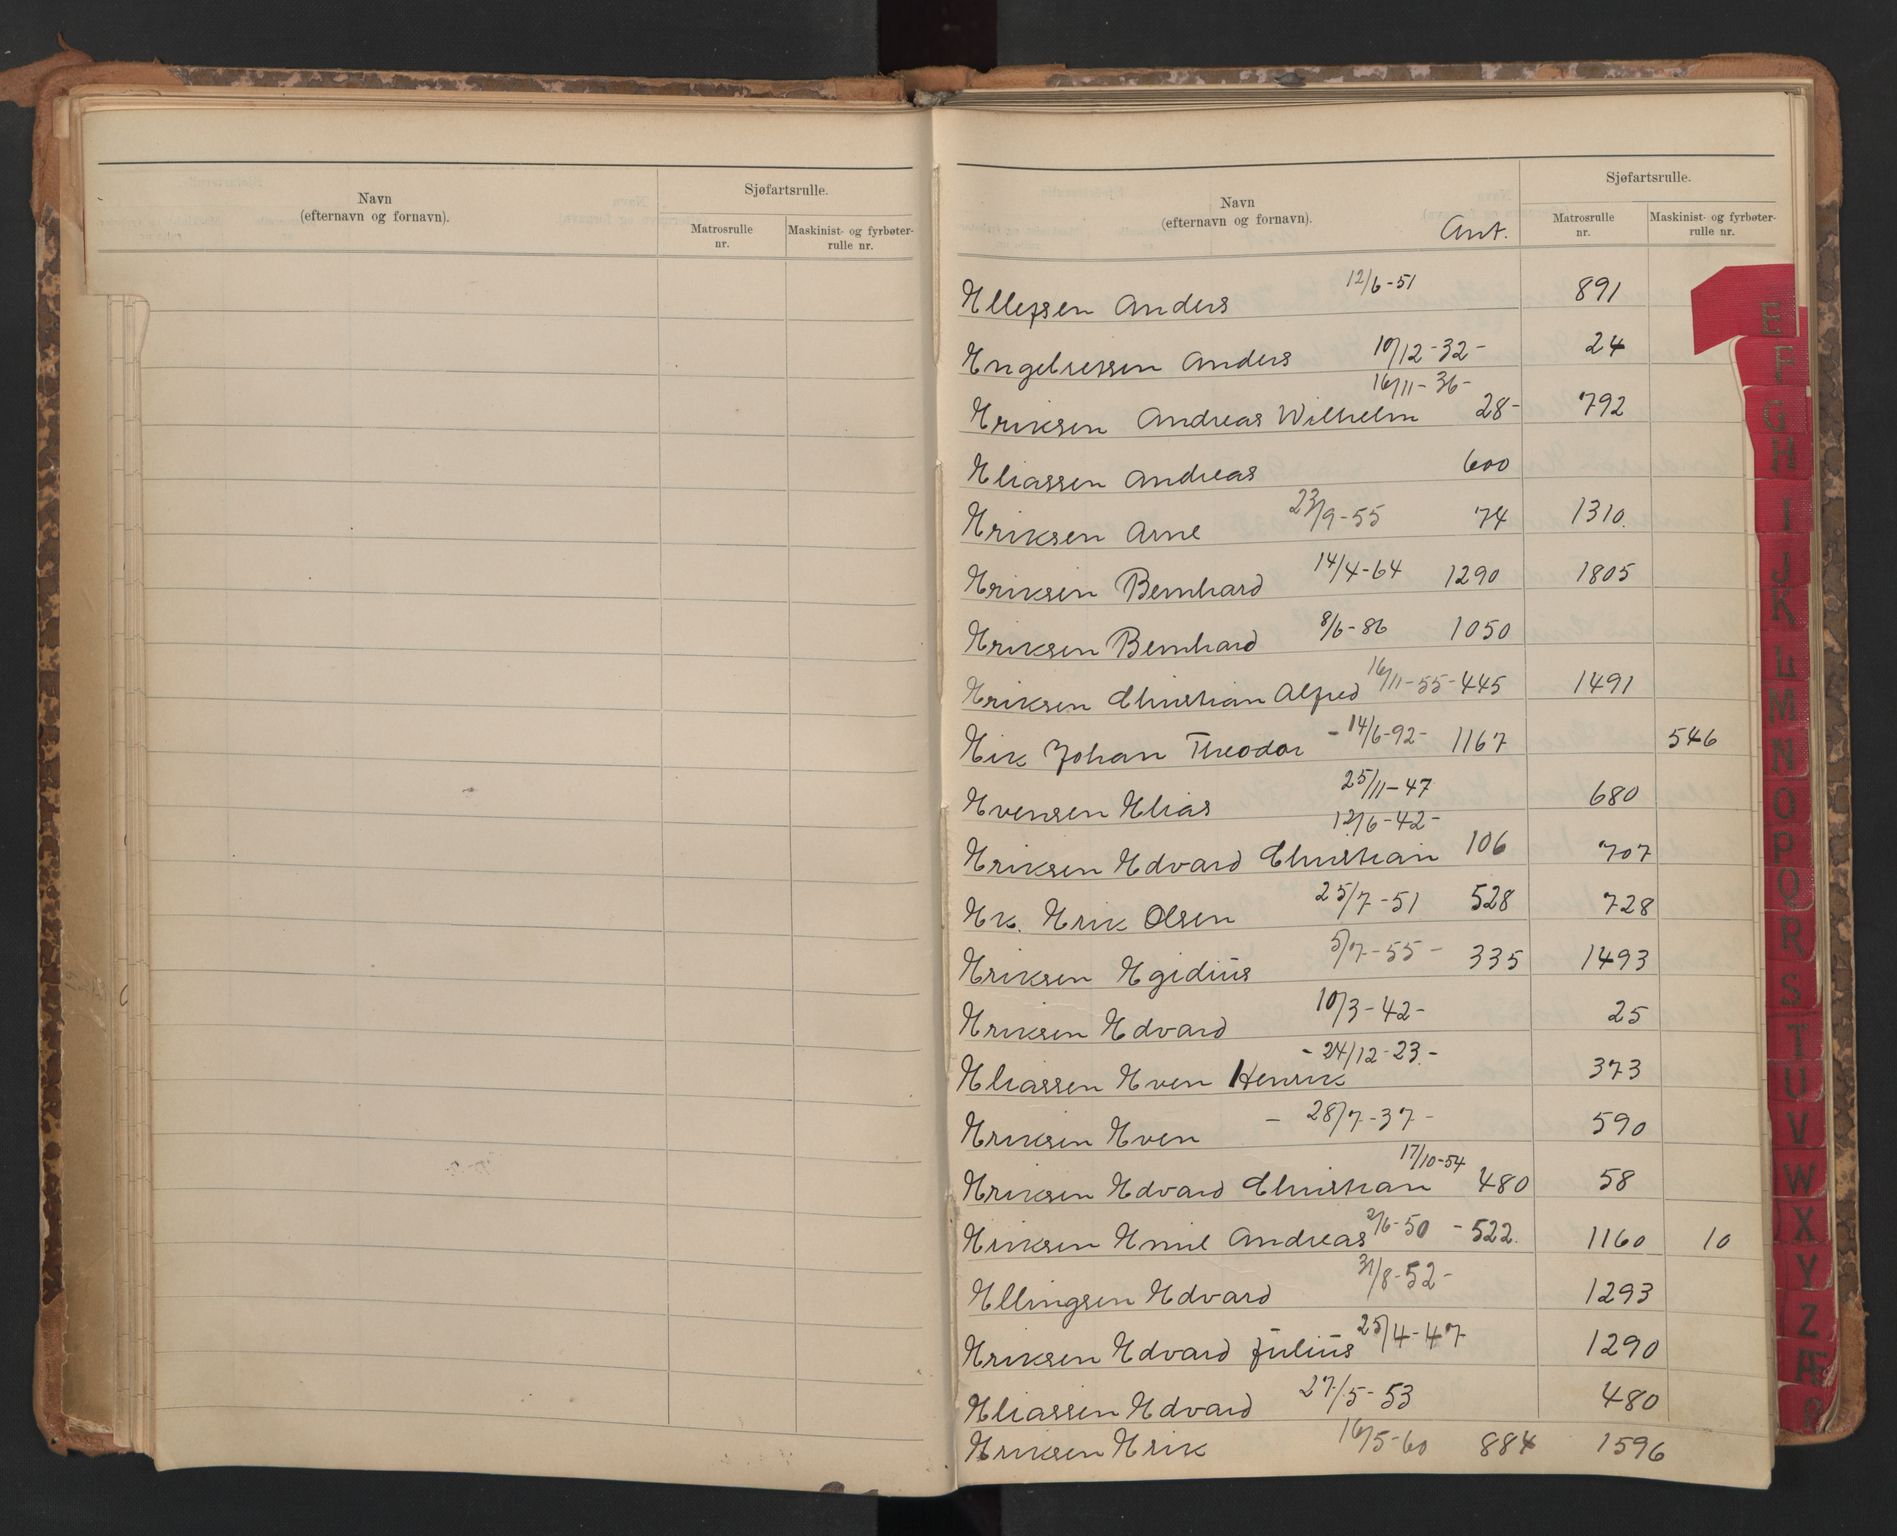 Navn
(efternavn og fornavn).
Sjøfartsrulle.
Matrosrulle
nr.
Maskinist- og fyrbøter-
rulle nr.
Navn
(efternavn og fornavn).
Ant.
Sjøfartsrulle.
Matrosrulle
nr.
Maskinist- og fyrbøter-
rulle nr.
Ellefsen Anders 12/6-51 891
Engebretsen Anders 10/12-32- 24
Eriksen Andreas Wilhelm 16/11-36- 28- 792
Eliassen Andreas 600
Eriksen Arne 23/9-55 74 1310.
Eriksen Bernhard 14/4-64 1290 1805
Eriksen Bernhard 8/6-86 1050
Eriksen Christian Alfred 16/11-55- 445 1491
Eik Johan Theodor -14/6-92- 1167 546
Evensen Elias 25/11-47 680
Eriksen Edvard Christian 12/6-42- 106 707
Ek. Erik Olsen 25/7-51 528 728
Eriksen Egidius 5/7-55- 335 1493
Eriksen Edvard 10/3-42- 25
Eliassen Even Henrik -24/12-23.- 373
Eriksen Even - 28/7-37- 590
Eriksen Edvard Christian 17/10-54 480 58
Eriksen Emil Andreas 2/6-50 -522. 1160 10
Ellingsen Edvard 31/8-52- 1293
Eriksen Edvard Julius 25/4-47- 1290
Eliassen Edvard 27/5-53 480
Eriksen Erik 16/5-60 884 1596
E
F
G
H
I
J
K
L
M
N
O
P
Q
R
S
T
U
V
W
X
Y
Z
Æ
Ø